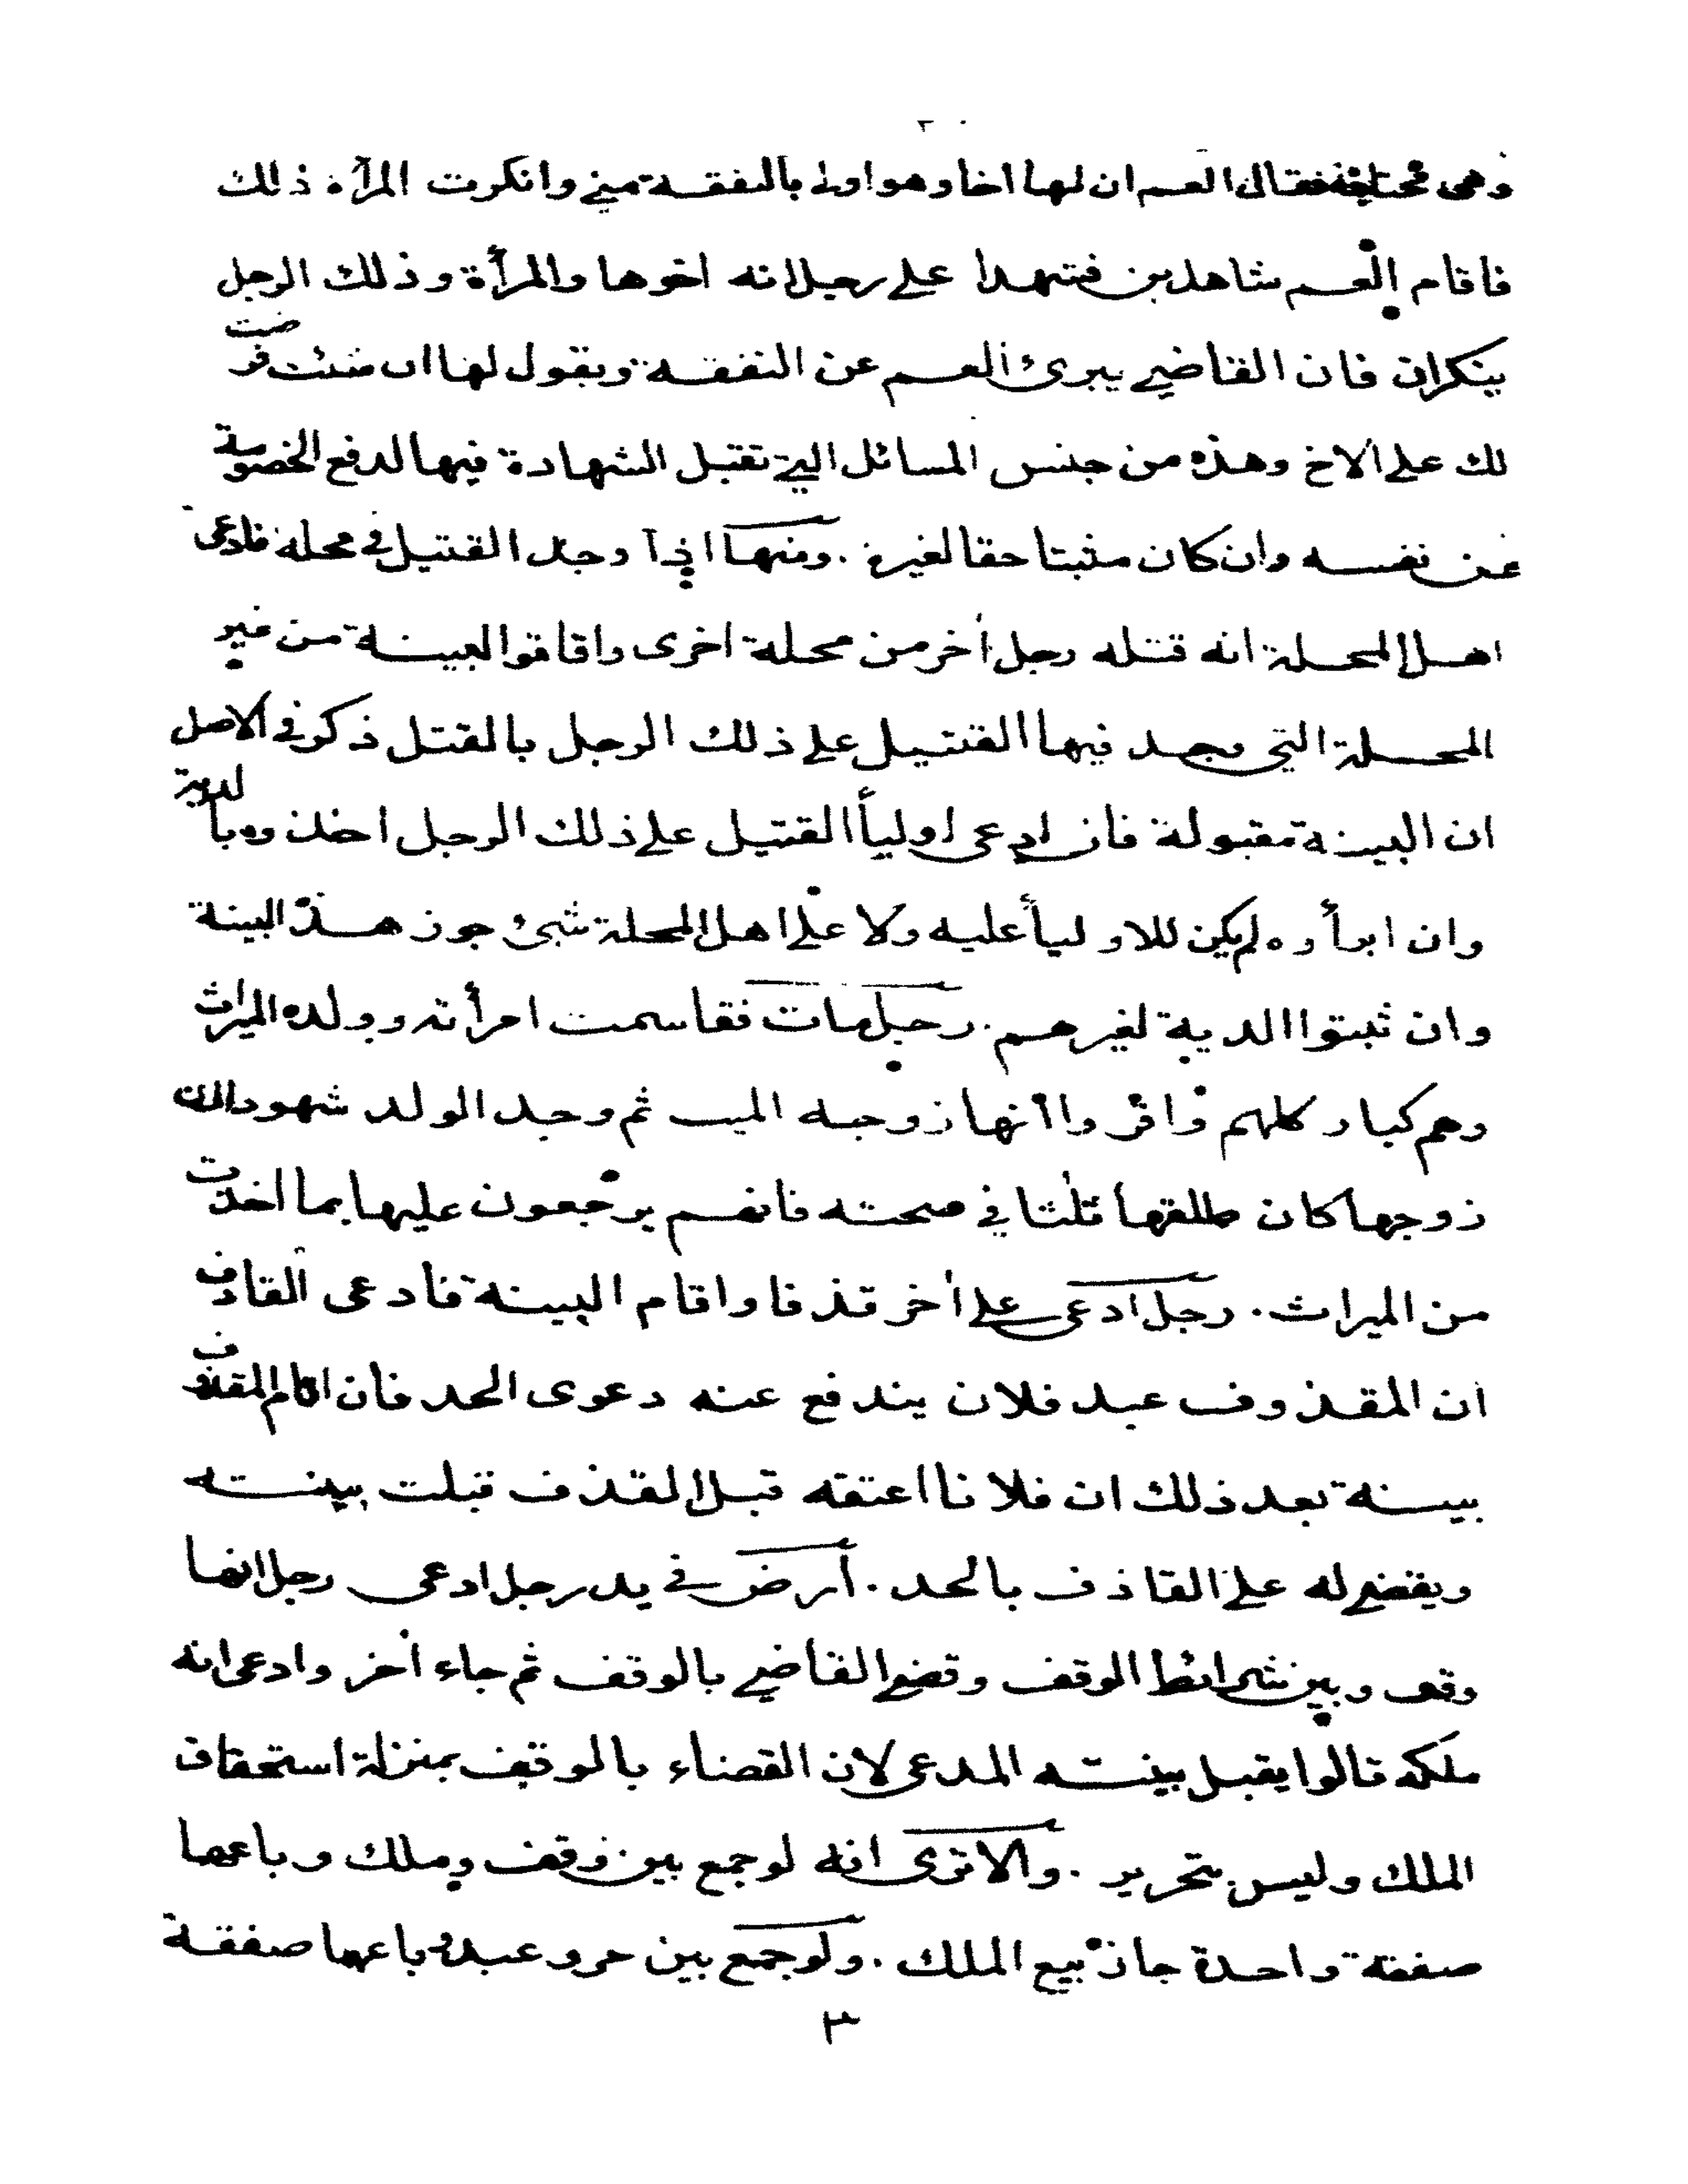 وهى محتاجة فقال العم ان لها اخا وهو اولى بالنفقة منى وانكرت المرأة ذلك
فاقام العم شاهدين فشهدا على رجل انه اخوها والمرأة وذلك الرجل
ينكران فان القاضى يبرئ العم عن النفقة ويقول لها ان شئت فرضت
لك على الاخ وهذه من جنس المسائل التى تقبل الشهادة فيها لدفع الخصومة
عن نفسه وان كان مثبتا حقا لغيره . ومنها اذا وجد القتيل فى محلة فادعى
اهل المحلة انه قتله رجل أخر من محلة اخرى واقاموا البينة من غير
المحلة التى وجد فيها القتيل على ذلك الرجل بالقتل ذكر فى الاصل
ان البينة مقبولة فان ادعى اولياأ القتيل على ذلك الرجل اخذوه بالدية
وان ابرأوه لم يكن للاولياأ عليه ولا على اهل المحلة شيئ جوز هذه البينة
وان ثبتوا الدية لغيرهم . رجل مات فقاسمت امرأته وولده الميراث
وهم كبار كلهم واقروا انها زوجه الميت ثم وجد الولد شهودا ان
زوجها كان طلقها ثلثا فى صحته فانهم يرجعون عليها بما اخذت
من الميراث . رجل ادعى على أخر قذفا واقام البينة فادعى القاذف
ان المقذوف عبد فلان يندفع عنه دعوى الحد فان اقام المقذوف
بينة بعد ذلك ان فلانا اعتقه قبل القذف قبلت بينته
ويقضى له على القاذف بالحد . أرض فى يد رجل ادعى رجل انها
وقف وبين شرائط الوقف وقضى القاضى بالوقف ثم جاء أخر وادعى انه
ملكه قالوا يقبل بينته المدعى لان القضاء بالوقف بمنزلة استحقاق
الملك وليس بتحرير . والا ترى انه لو جمع بين وقف وملك وباعها
صفقة واحدة جاز بيع الملك . ولو جمع بين حر وعبد وباعها صفقة
٣